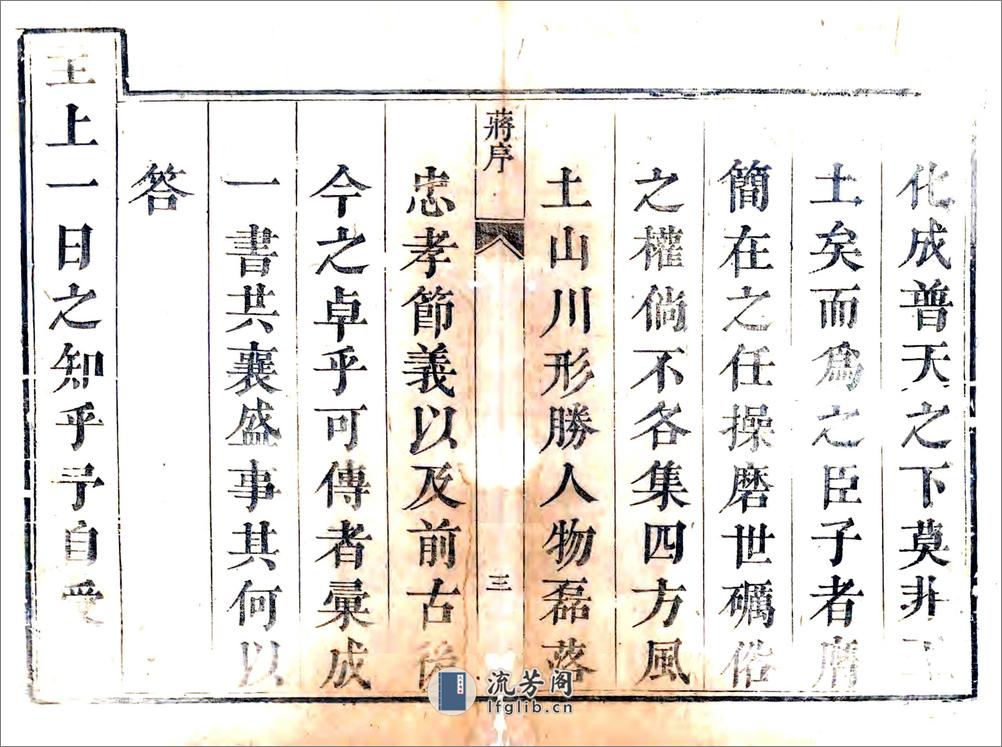 化成普天之下莫非王
土矣而為之臣子者膺
簡在之任操磨世礪俗
之權倘不各集四方風
土山川形勝人物磊落
蔣序
三
忠孝節義以及前古後
今之卓乎可傳者彙成
一書共襄盛事其何以
答
主上一日之知乎予自受
流芳阁
lfglib.cn